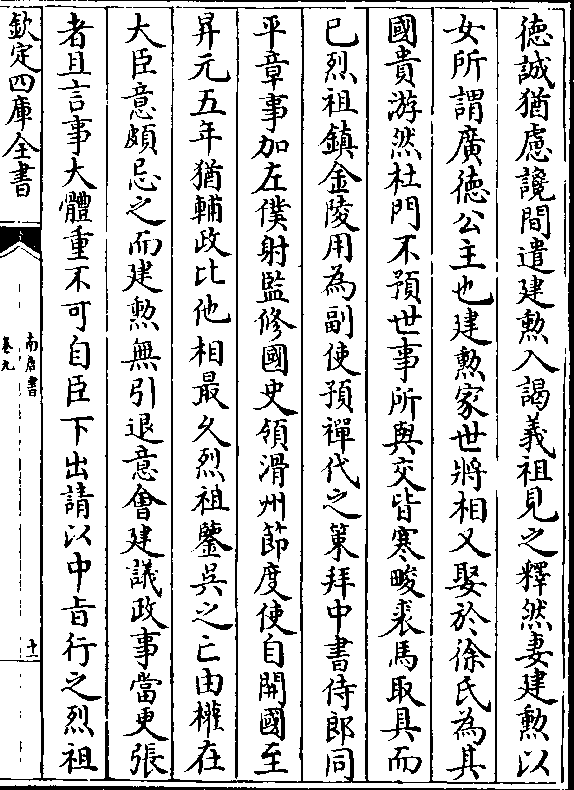 德誠猶慮讒間遣建勲入謁義祖見之釋然妻建勲以
女所謂廣德公主也建勲家世將相又娶於徐氏為其
國貴游然杜門不預世事所與交皆寒畯裘馬取具而
已烈祖鎮金陵用為副使預禪代之策拜中書侍郎同
平章事加左僕射監修國史領滑州節度使自開國至
昇元五年猶輔政比他相最久烈祖鑒吳之亡由權在
大臣意頗忌之而建勲無引退意會建議政事當更張
者且言事大體重不可自臣下出請以中旨行之烈祖
欽定四庫全書
南唐書
卷九
十一